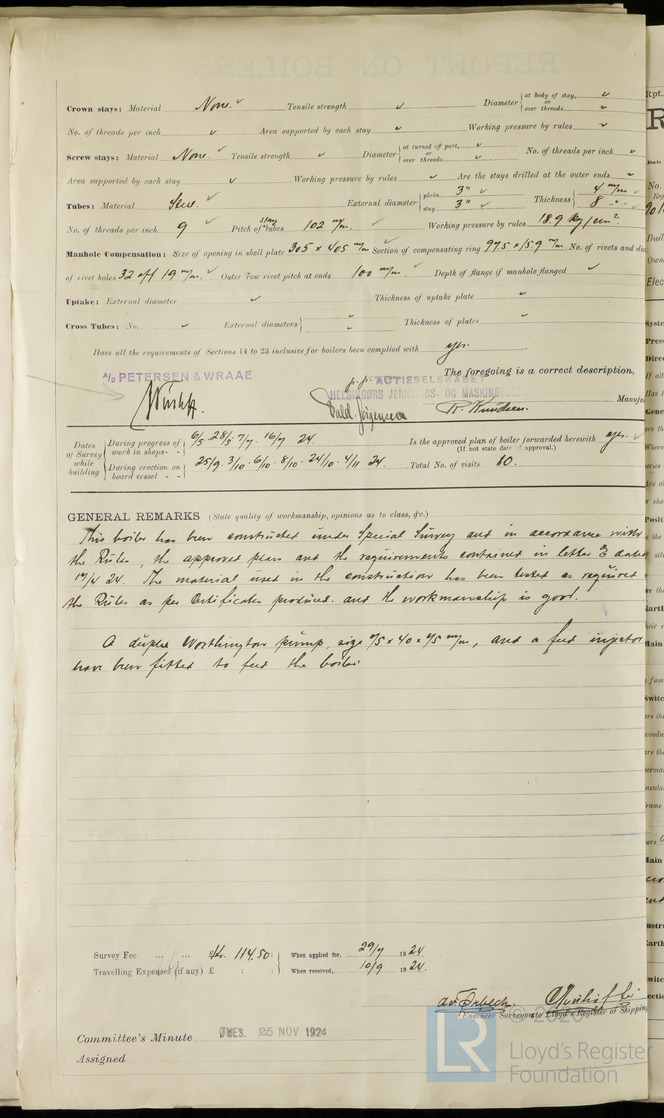 Crown stays: Material None. ✓ Tensile strength ✓ Diameter { at body of stay, ✓ or over threads ✓
No. of threads per inch ✓ Area supported by each stay ✓ Working pressure by rules ✓
Screw stays: Material None. ✓ Tensile strength ✓ Diameter { at turned off part, ✓ or over threads ✓ No. of threads per inch ✓
Area supported by each stay ✓ Working pressure by rules ✓ Are the stays drilled at the outer ends ✓
Tubes: Material Steel. ✓ External diameter { plain 3" ✓ stay 3" ✓ Thickness { 4 m/m ✓ 8 " ✓
No. of threads per inch 9 ✓ Pitch of stay tubes 102 m/m. ✓ Working pressure by rules 18.9 kg/cm².
Manhole Compensation: Size of opening in shell plate 305 × 405 m/m Section of compensating ring No. of rivets and dia
of rivet holes 32 off 19 m/m. ✓ Outer row rivet pitch at ends 100 m/m. ✓ Depth of flange if manhole flanged ✓
Uptake: External diameter ✓ Thickness of uptake plate ✓
Cross Tubes: No. ✓ External diameters { ✓ ✓ Thickness of plates ✓
Have all the requirements of Sections 14 to 23 inclusive for boilers been complied with yes.
The foregoing is a correct description,
A/S PETERSEN & WRAAE
p.p. AKTIESELSKABET
HELSINGØRS JERNSKIBS- OG MASKINBY
Vald. Jörgensen R. Knudsen. Manufa
Dates of Survey while building
During progress of work in shops - - 6/5. 28/5. 7/7. 16/7 24.
During erection on board vessel - - 25/9. 3/10. 6/10. 8/10. 24/10. 4/11 24.
Is the approved plan of boiler forwarded herewith yes. ✓
(If not state date of approval.)
Total No. of visits 80.
GENERAL REMARKS (State quality of workmanship, opinions as to class, &c.)
This boiler has been constructed under Special Survey and in accordance with
the Rules, the approved plan and the requirements contained in letter E dated
24. The material used in the construction has been tested as required
the Rules as per Certificates produced. and the workmanship is good.
A duplex Worthington pump, size and a feed injector
have been fitted to feed the boiler
Survey Fee ... ... £ Kr. 114.50: When applied for, 29/7 1924
Travelling Expenses (if any) £ : : When received, 10/9 1924.
Engineer Surveyor to Lloyd's Register of Shipping
Committee's Minute TUES. 25 NOV 1924
Assigned
© 2020
LR
Lloyd's Register
Foundation